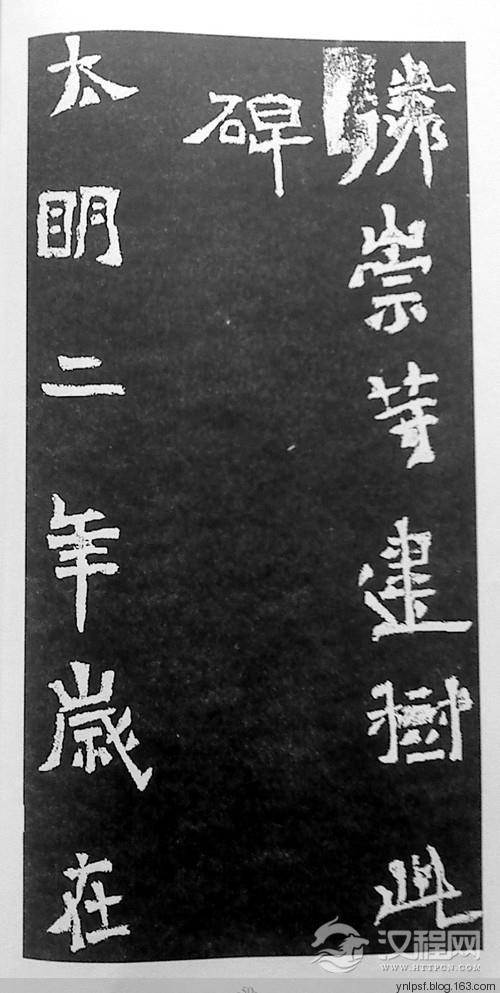 驎崇等建樹此
碑
太明二年歲在
汉程网
HTTPCN.COM
ynlpsf.blog.163.com